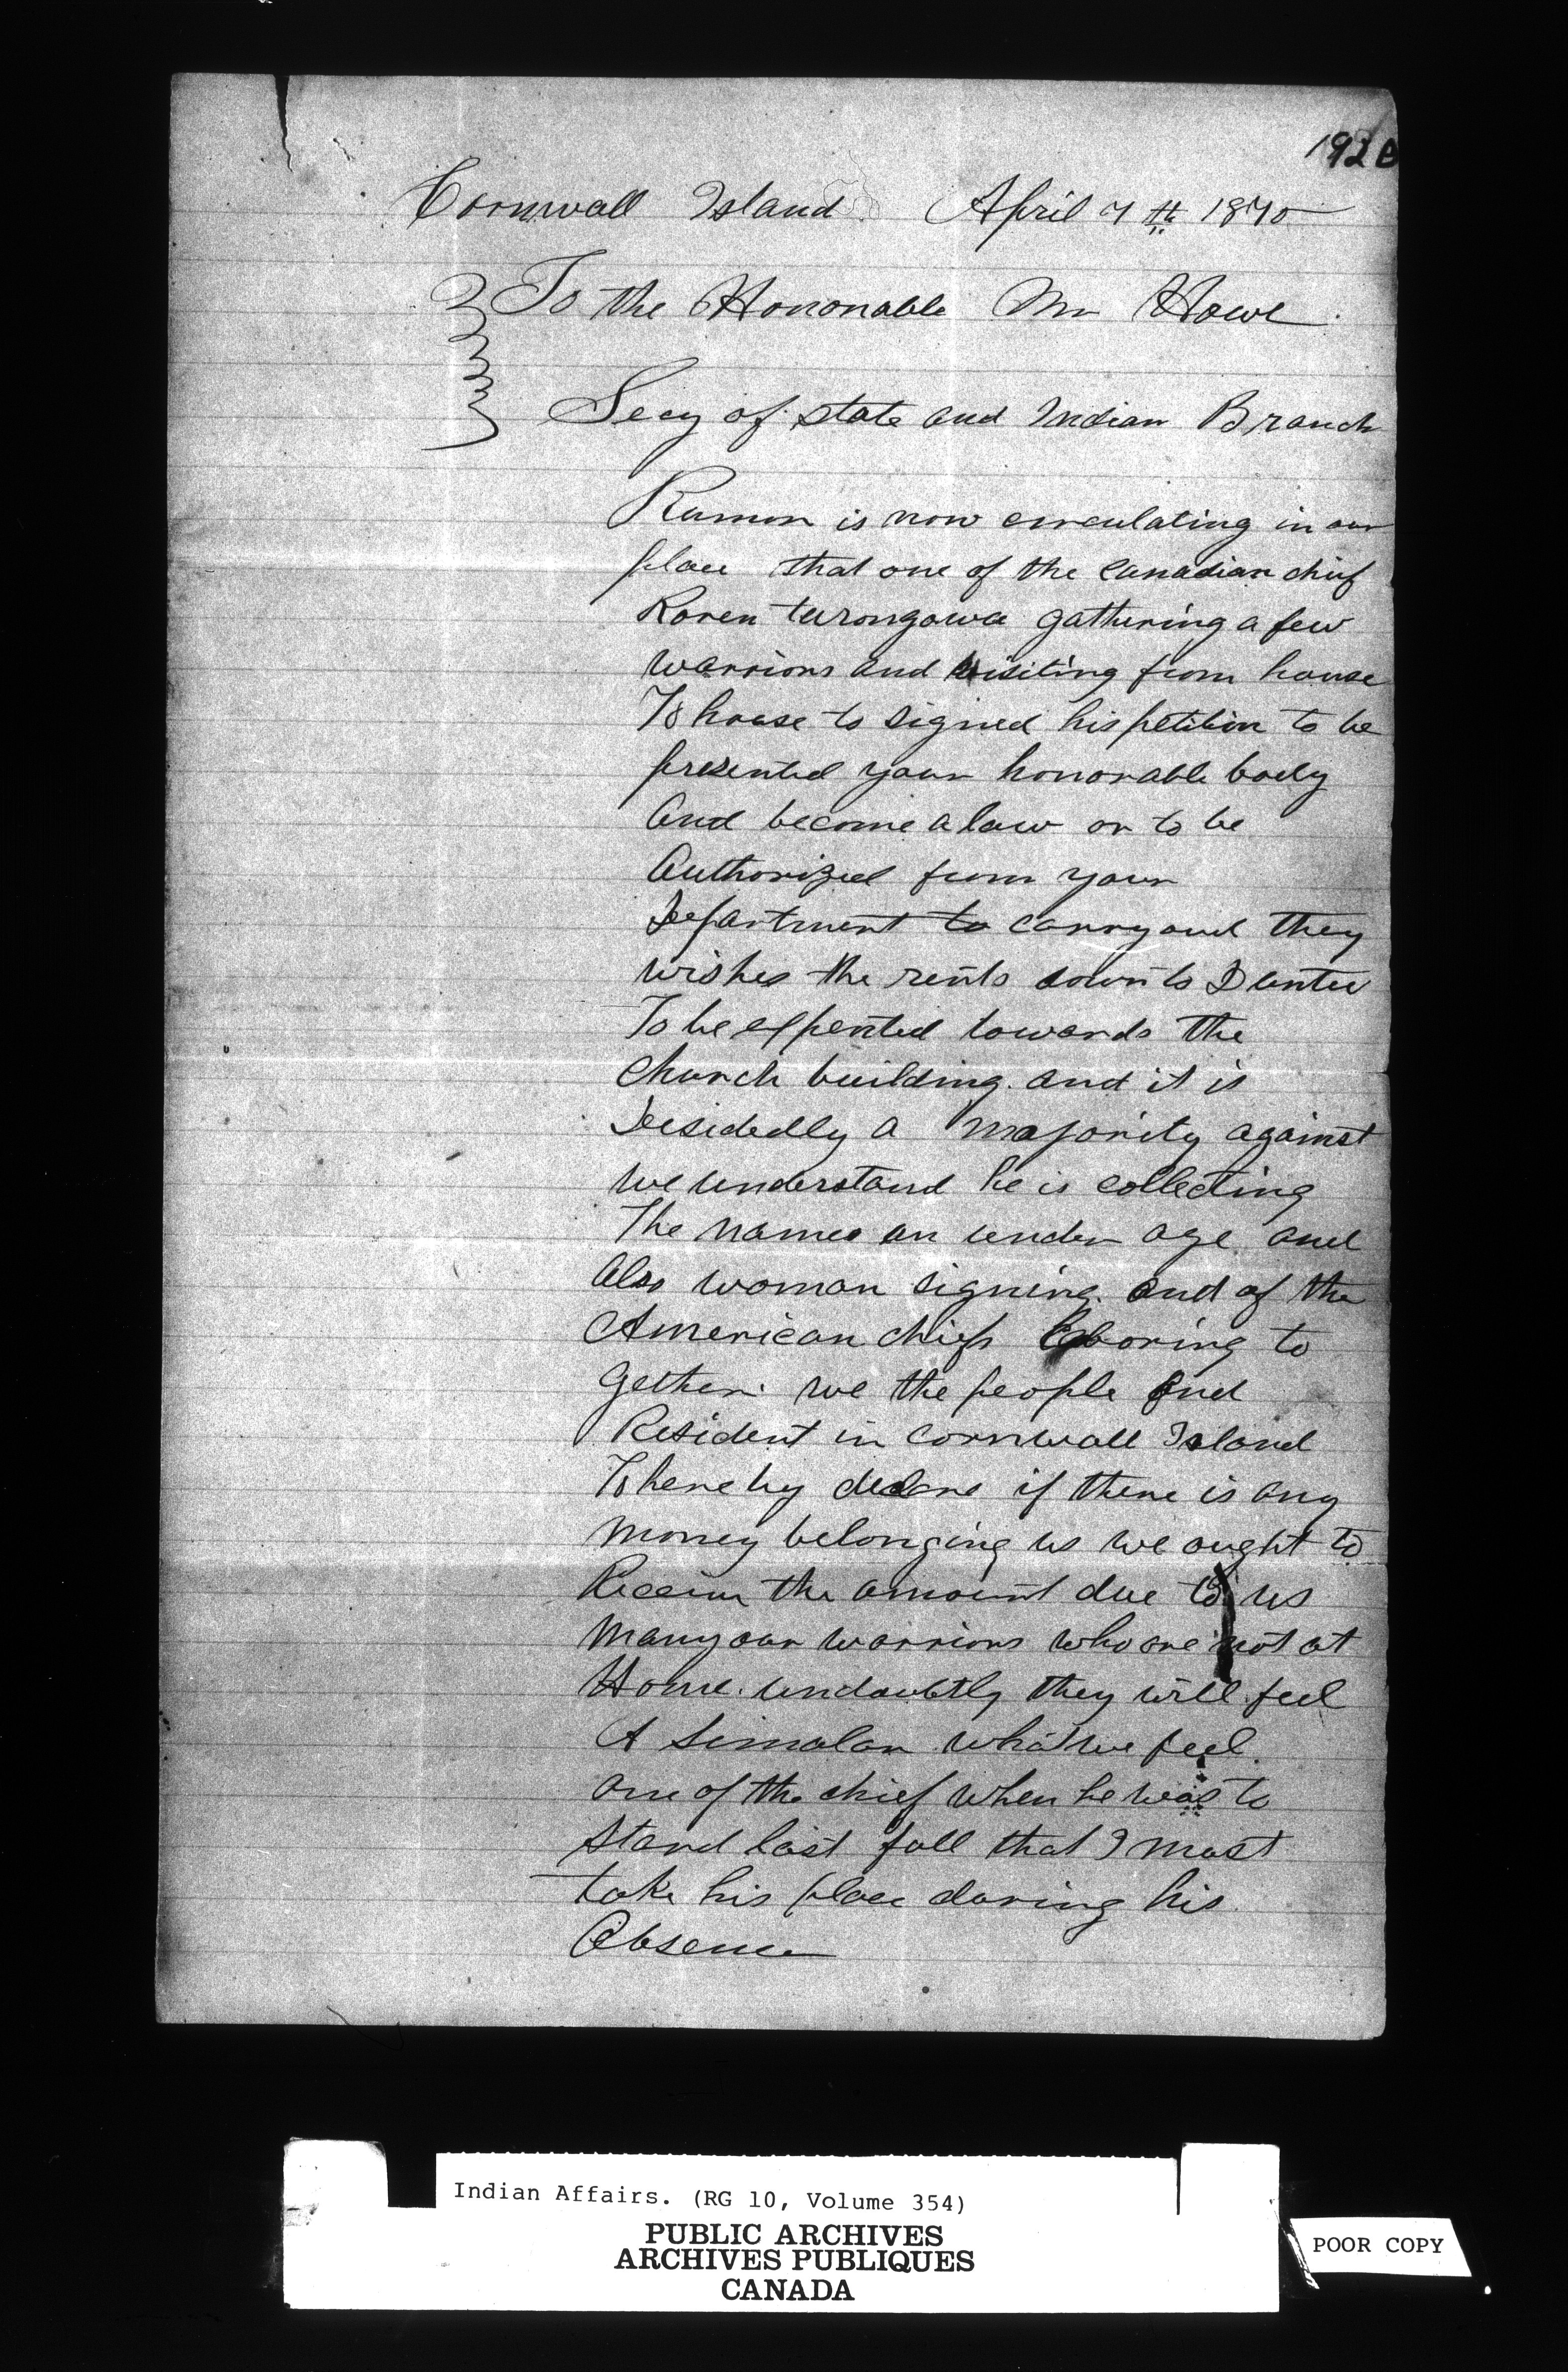 192
Cornwall Island April 7th 1870
To the Hononable Mr Howe
Secy of state and Indian Branch
Rumor is now circulating in our
place that one of the Canadian chief
Roren turongowa gathering a few
warriors and visiting from house
To house to signed his petition to be
presented your honorable body
And become a law or to be
Authorized from your
Department to carry out they
wishes the rents down to Duntee
To be expented towards the
Church building. and it is
Desidedly a majority against
we understand he is collecting
The names an under age and
also woman signing. and of the
American chiefs laboring to
gether. we the people and
Resident in Cornwall Island
To hereby declare if there is any
money belonging us we ought to
Receive the amount due to us
Many our warriors who are not at
Home. undoubtly they will feel
A simalar what we feel.
one of the chief when he was to
stand last fall that I must
take his place during his
Absence
Indian Affairs. (RG 10, Volume 354)
PUBLIC ARCHIVES
ARCHIVES PUBLIQUES
CANADA
POOR COPY